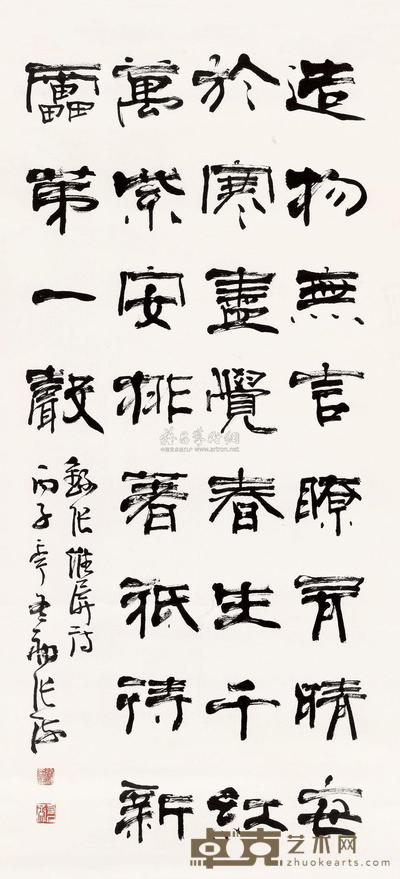 造物無言瞭有晴每
於寒盡覺春生千紅
萬紫安排著祇待新
靁第一聲
張維屏詩
丙子
雅昌藝術網
www.artron.net
卓克艺术网
zhuokearts.com